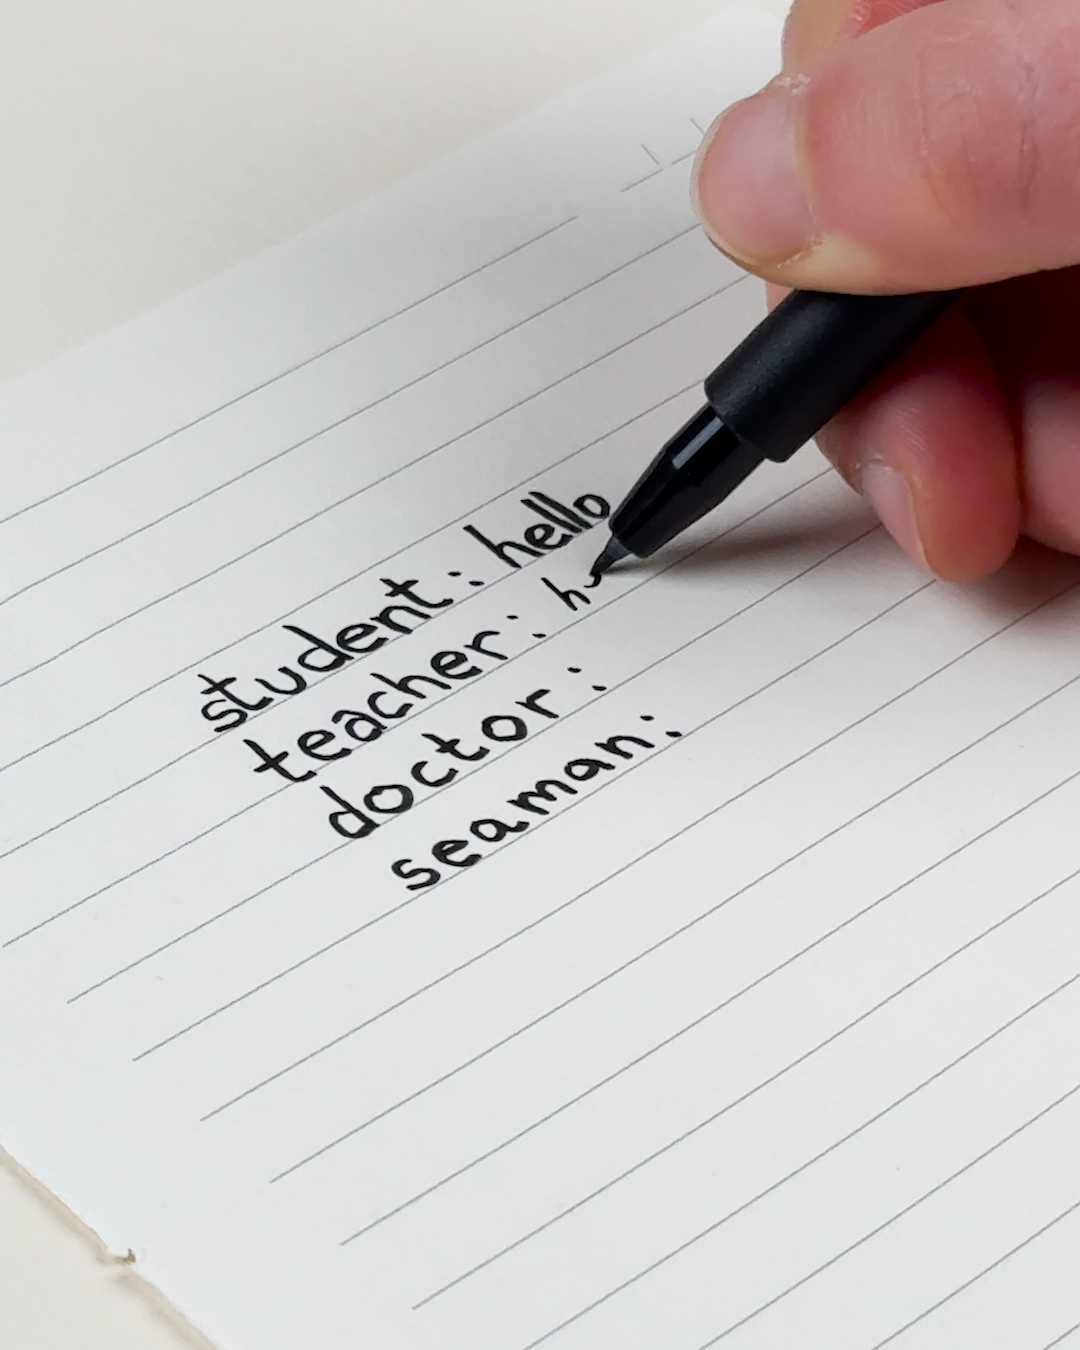 student: hello
teacher: h
doctor:
seaman: